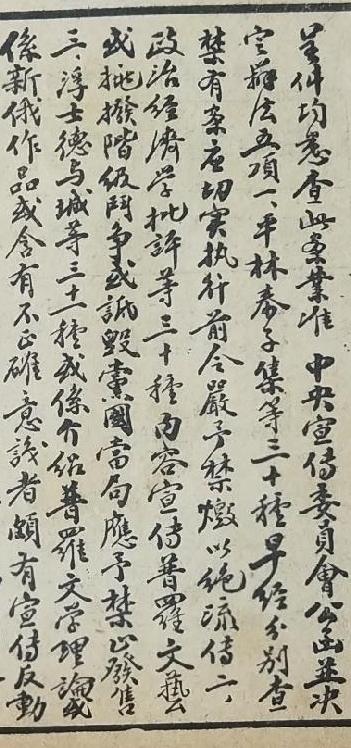 呈件均悉查此案業准 中央宣傳委員會公函並决
定辦法五項一、平林泰子集等三十種早經分别查
禁有案应切实执行前令嚴予禁燬以绝流傳二、
政治經濟学批評等三十種内容宣傳普羅文藝
或挑撥階级鬥争或詆毀黨國當局應予禁止發售
三、浮士德与城等三十一種或係介紹普羅文学理論或
係新俄作品或含有不正確意識者頗有宣傳反動